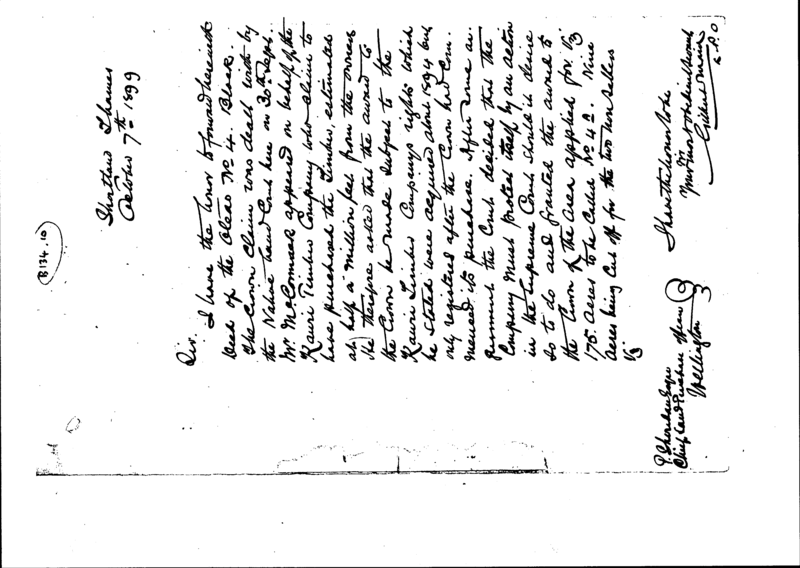 B134.10
Shortland Thames
October 7th 1899
Sir.
I have the honor to forward herewith
Deed of the Otearo No 4. Block.
The Crown Claim was dealt with by
the Native Land Court here on 30th Sept.
Mr McCormack appeared on behalf of the
Kauri Timber Company who claim to
have purchased the Timber, estimated
at half a million feet from the owners
He therefore asked that the award to
the Crown be made subject to the
Kauri Timber Companys rights which
he stated were acquired about 1894 but
only registered after the Crown had com-
menced its purchase. After some ar-
gument the Court decided that the
Company must protect itself by an action
in the Supreme Court should it desire
so to do and granted the award to
the Crown of the area applied for. Viz
175 Acres to be Called No 4A. Nine
acres being Cut off for the two non sellers
I have the honor to be
Sir
Your most obedient servant
Gilbert Mair
L.P.O
P. Sheridan Esqre
Chief Land Purchase Officer
Wellington